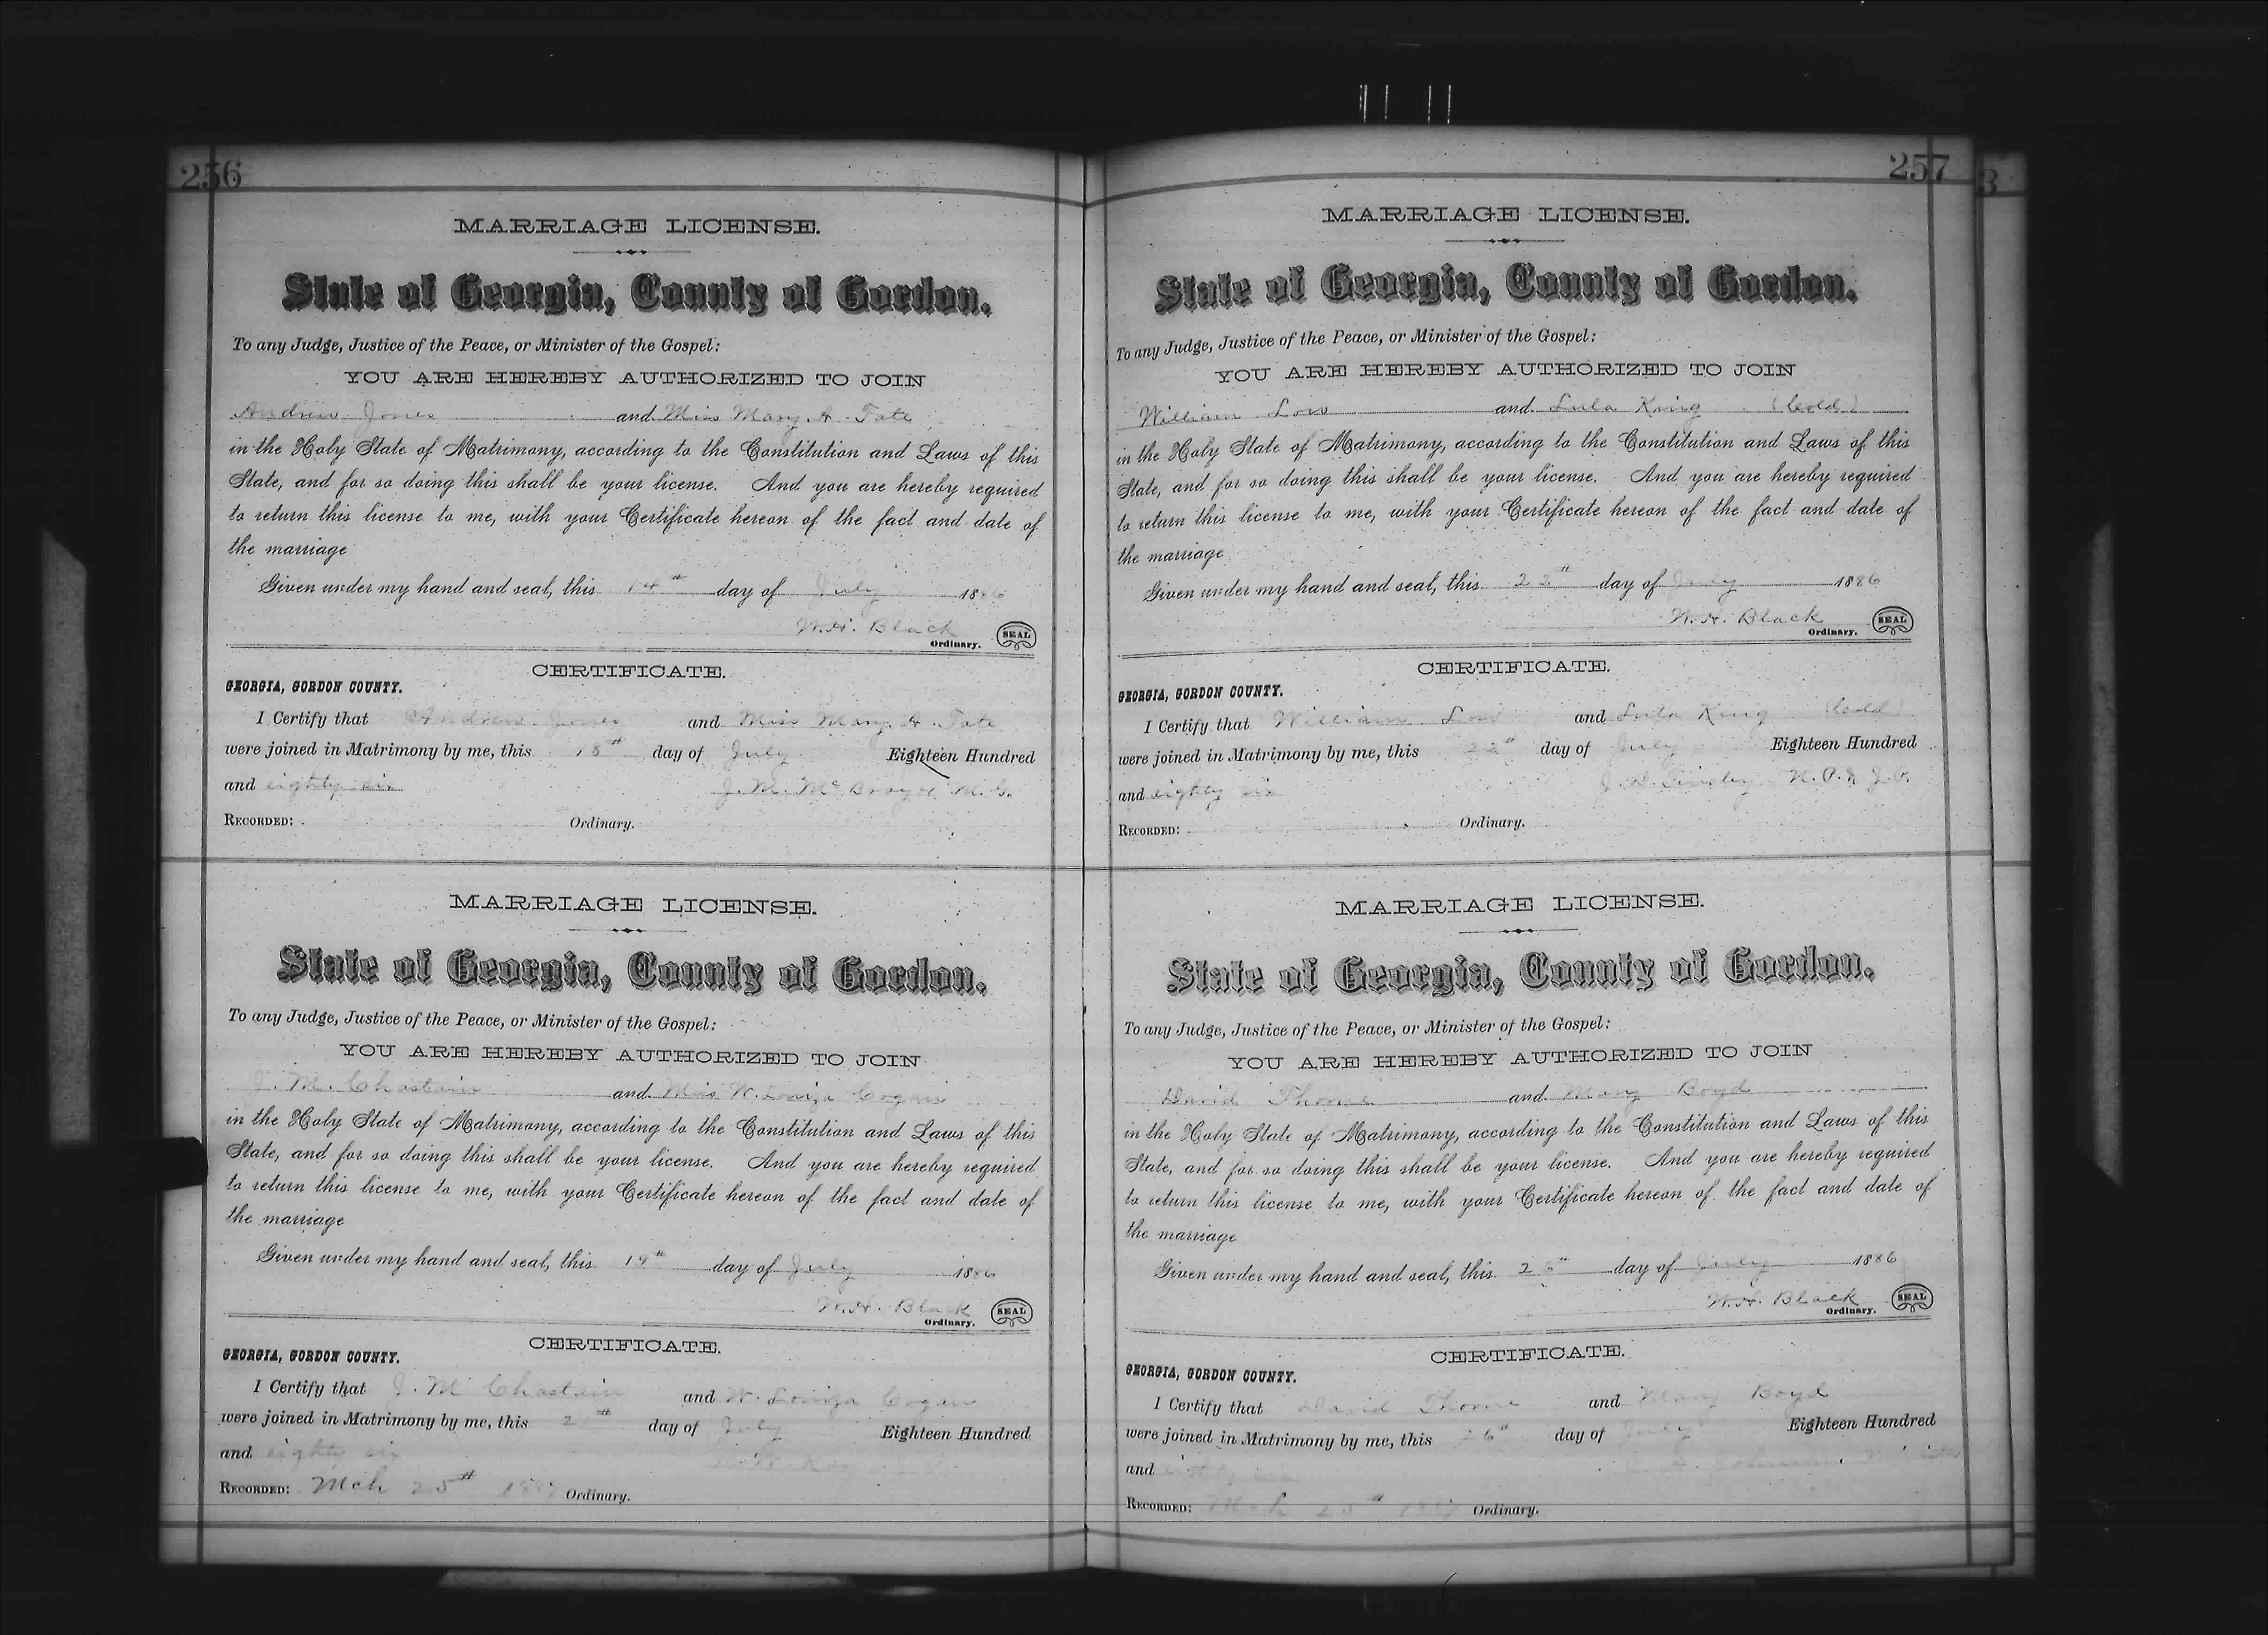 256
MARRIAGE LICENSE.
State of Georgia, County of Gordon.
To any Judge, Justice of the Peace, or Minister of the Gospel:
YOU ARE HEREBY AUTHORIZED TO JOIN
Andrew Jones and Miss Mary A. Tate
in the Holy State of Matrimony, according to the Constitution and Laws of this
State, and for so doing this shall be your license. And you are hereby required
to return this license to me, with your Certificate hereon of the fact and date of
the marriage
Given under my hand and seal, this 14th day of July 1886
W. H. Black SEAL
Ordinary.
CERTIFICATE.
GEORGIA, GORDON COUNTY.
I Certify that Andrew Jones and Miss Mary A. Tate
were joined in Matrimony by me, this 18th day of July Eighteen Hundred
and eighty six
J. M. McBrayer M. G.
RECORDED: Ordinary.
MARRIAGE LICENSE.
State of Georgia, County of Gordon.
To any Judge, Justice of the Peace, or Minister of the Gospel:
YOU ARE HEREBY AUTHORIZED TO JOIN
J. M. Chastain and Miss W. Louiza Cogan
in the Holy State of Matrimony, according to the Constitution and Laws of this
State, and for so doing this shall be your license. And you are hereby required
to return this license to me, with your Certificate hereon of the fact and date of
the marriage
Given under my hand and seal, this 19th day of July 1886
W. H. Black SEAL
Ordinary.
CERTIFICATE.
GEORGIA, GORDON COUNTY.
I Certify that J. M Chastain and W. Louiza Cogan
were joined in Matrimony by me, this day of July Eighteen Hundred
and eighty six
RECORDED: Mch 25th 1887 Ordinary.
257
3
MARRIAGE LICENSE.
State of Georgia, County of Gordon.
To any Judge, Justice of the Peace, or Minister of the Gospel:
YOU ARE HEREBY AUTHORIZED TO JOIN
William Low and Lula King (Cold)
in the Holy State of Matrimony, according to the Constitution and Laws of this
State, and for so doing this shall be your license. And you are hereby required
to return this license to me, with your Certificate hereon of the fact and date of
the marriage
Given under my hand and seal, this day of July 1886
W. H. Black SEAL
Ordinary.
CERTIFICATE.
GEORGIA, GORDON COUNTY.
I Certify that William Low and Lula King (Cold)
were joined in Matrimony by me, this day of July Eighteen Hundred
and eighty six
J. D. Tinsley N. P. & J. P.
RECORDED: Ordinary.
MARRIAGE LICENSE.
State of Georgia, County of Gordon.
To any Judge, Justice of the Peace, or Minister of the Gospel:
YOU ARE HEREBY AUTHORIZED TO JOIN
David Thorne and Mary Boyd
in the Holy State of Matrimony, according to the Constitution and Laws of this
State, and for so doing this shall be your license. And you are hereby required
to return this license to me, with your Certificate hereon of the fact and date of
the marriage
Given under my hand and seal, this day of July 1886
W. H. Black SEAL
Ordinary.
CERTIFICATE.
GEORGIA, GORDON COUNTY.
I Certify that David Thorne and Mary Boyd
were joined in Matrimony by me, this 26th day of July Eighteen Hundred
and eighty six
RECORDED: Mch 25th 1887 Ordinary.